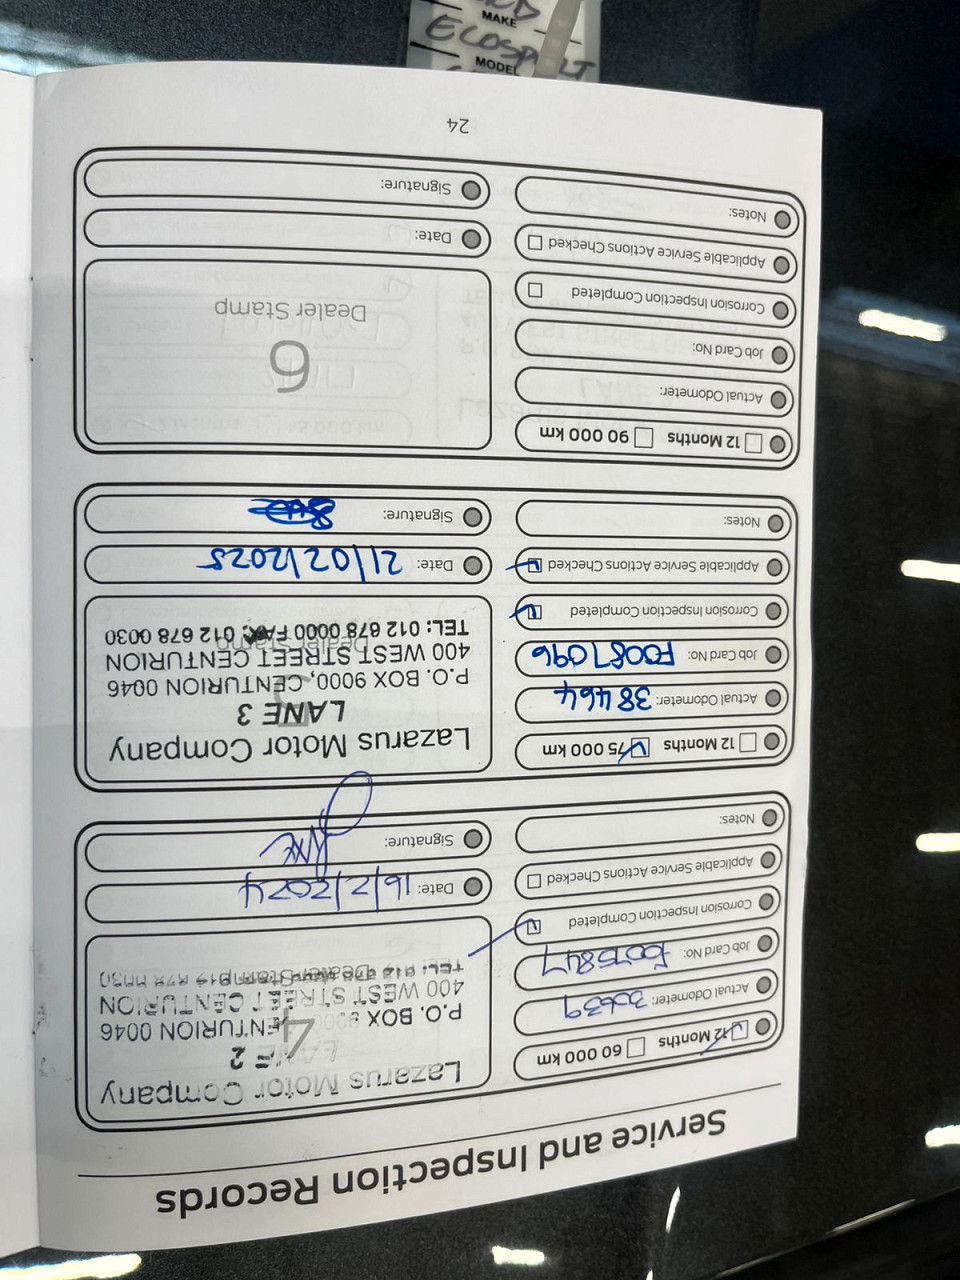 MAKE
ECOSPORT
MODEL
Service and Inspection Records
12 Months 60 000 km
Actual Odometer: 30639
Job Card No: F0075847
Corrosion Inspection Completed
Applicable Service Actions Checked
Notes:
Lazarus Motor Company
LANE 2
P.O. BOX 9000, CENTURION 0046
400 WEST STREET CENTURION
4
Dealer Stamp
Date: 16/2/2024
Signature:
12 Months 75 000 km
Actual Odometer: 38464
Job Card No: F0087096
Corrosion Inspection Completed
Applicable Service Actions Checked
Notes:
Lazarus Motor Company
LANE 3
P.O. BOX 9000, CENTURION 0046
400 WEST STREET CENTURION
TEL: 012 678 0000 FAX: 012 678 0030
5
Dealer Stamp
Date: 21/02/2025
Signature:
12 Months 90 000 km
Actual Odometer:
Job Card No:
Corrosion Inspection Completed
Applicable Service Actions Checked
Notes:
6
Dealer Stamp
Date:
Signature:
24